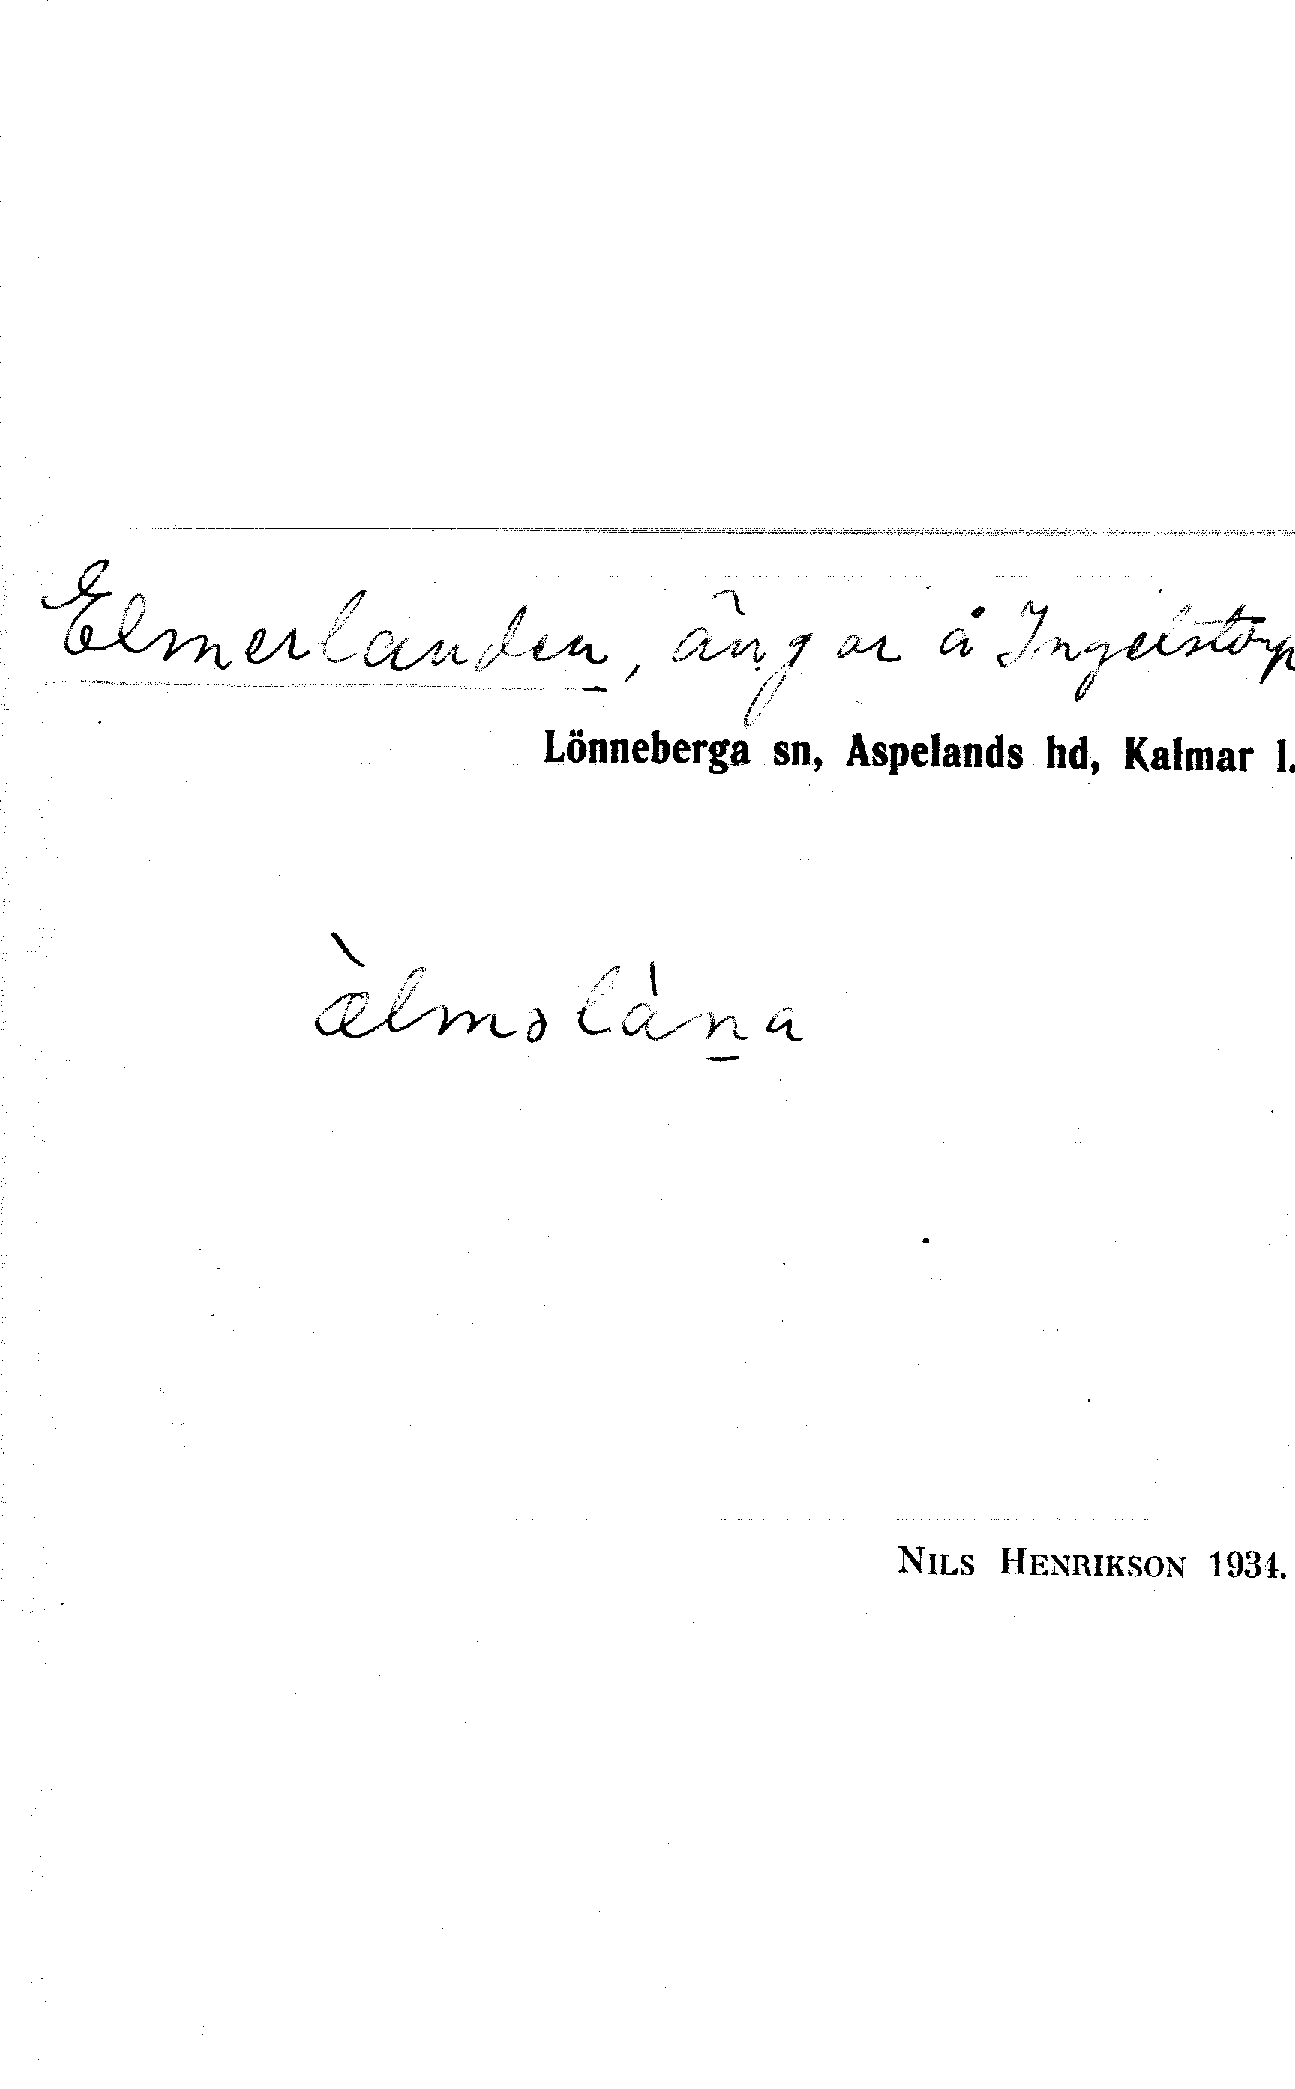 Elmerlanden, ängar å Ingelstorp
Lönneberga sn, Aspelands hd, Kalmar l.
æ̀lməlàṉa
NILS HENRIKSON 1934.